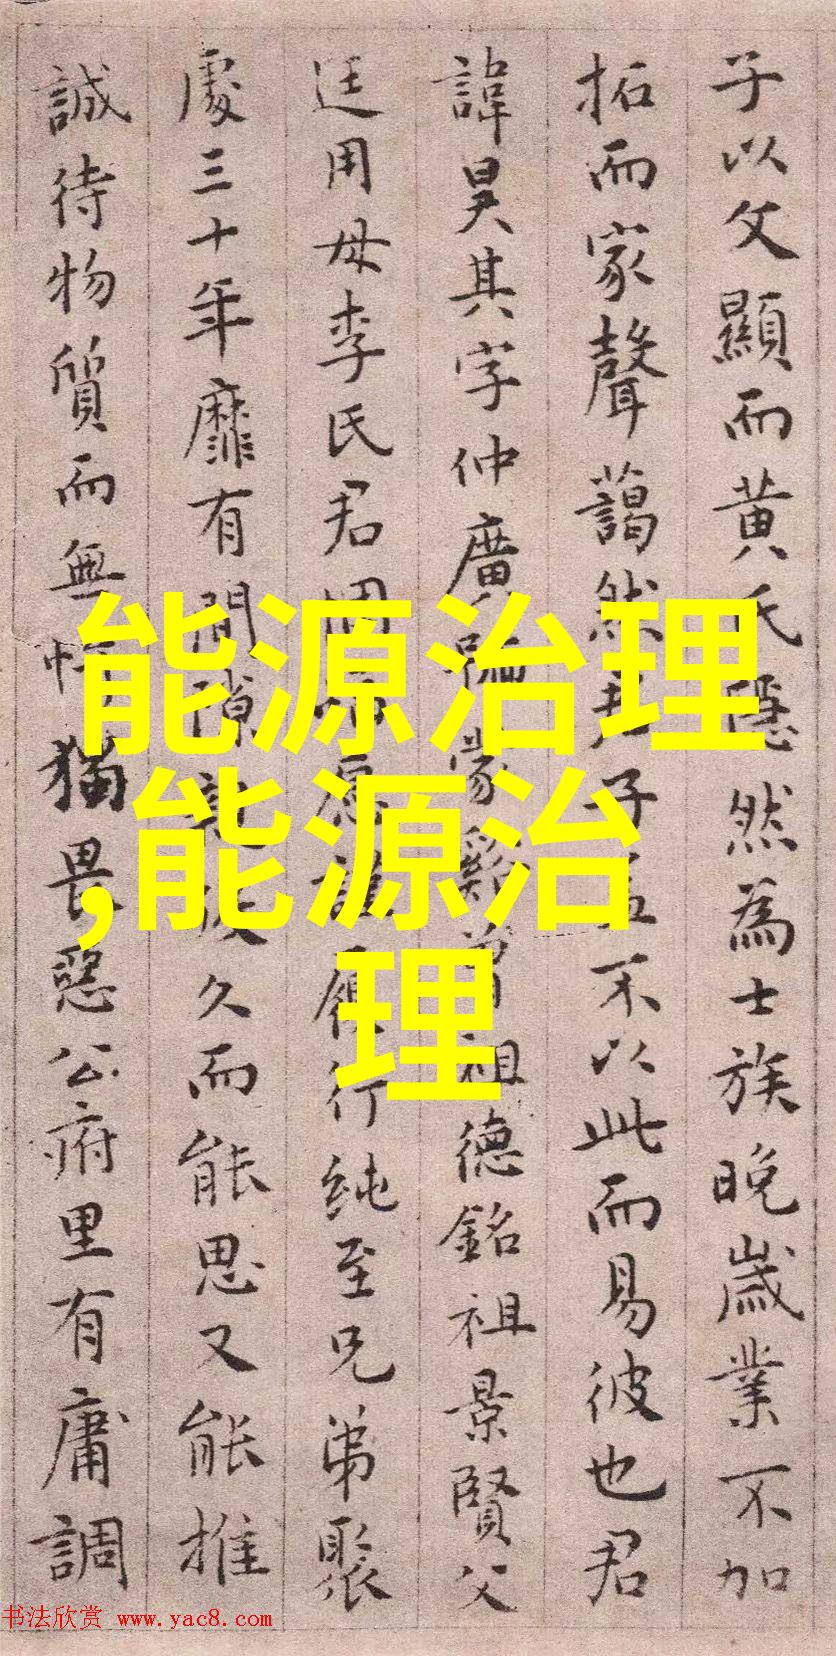 子以父顯而黄氏隱然為士族晚歲業不加
拓而家聲藹然君子盖不以此而易彼也君
諱昊其字仲廣蒙谿曾祖德銘祖景賢父
廷用母李氏君履行純至兄弟聚
處三十年靡有間隙久而能思又能推
誠待物質而無忤猶畏惡公府里有庸調
能源治理
,能源治
理
书法欣赏 www.yac8.com